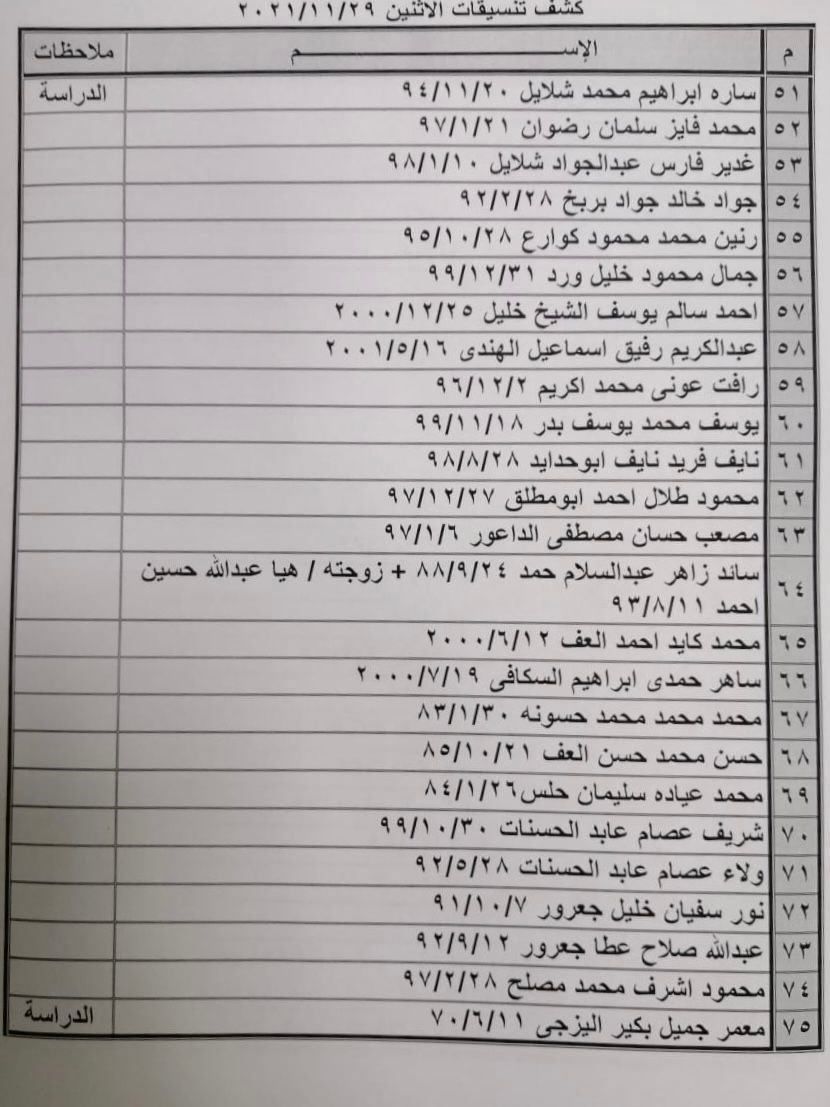 كشف تنسيقات الاثنين ٢٠٢١/١١/٢٩
م الإســـــــــم ملاحظات
٥١ ساره ابراهيم محمد شلايل ٩٤/١١/٢٠ الدراسة
٥٢ محمد فايز سلمان رضوان ٩٧/١/٢١
٥٣ غدير فارس عبدالجواد شلايل ٩٨/١/١٠
٥٤ جواد خالد جواد بربخ ٩٢/٢/٢٨
٥٥ رنين محمد محمود كوارع ٩٥/١٠/٢٨
٥٦ جمال محمود خليل ورد ٩٩/١٢/٣١
٥٧ احمد سالم يوسف الشيخ خليل ٢٠٠٠/١٢/٢٥
٥٨ عبدالكريم رفيق اسماعيل الهندى ٢٠٠١/٥/١٦
٥٩ رافت عونى محمد اكريم ٩٦/١٢/٢
٦٠ يوسف محمد يوسف بدر ٩٩/١١/١٨
٦١ نايف فريد نايف ابوحدايد ٩٨/٨/٢٨
٦٢ محمود طلال احمد ابومطلق ٩٧/١٢/٢٧
٦٣ مصعب حسان مصطفى الداعور ٩٧/١/٦
٦٤ سائد زاهر عبدالسلام حمد ٨٨/٩/٢٤ + زوجته / هيا عبدالله حسين
احمد ٩٣/٨/١١
٦٥ محمد كايد احمد العف ٢٠٠٠/٦/١٢
٦٦ ساهر حمدى ابراهيم السكافى ٢٠٠٠/٧/١٩
٦٧ محمد محمد محمد حسونه ٨٣/١/٣٠
٦٨ حسن محمد حسن العف ٨٥/١٠/٢١
٦٩ محمد عياده سليمان حلس٨٤/١/٢٦
٧٠ شريف عصام عابد الحسنات ٩٩/١٠/٣٠
٧١ ولاء عصام عابد الحسنات ٩٢/٥/٢٨
٧٢ نور سفيان خليل جعرور ٩١/١٠/٧
٧٣ عبدالله صلاح عطا جعرور ٩٢/٩/١٢
٧٤ محمود اشرف محمد مصلح ٩٧/٢/٢٨
٧٥ معمر جميل بكير اليزجى ٧٠/٦/١١ الدراسة